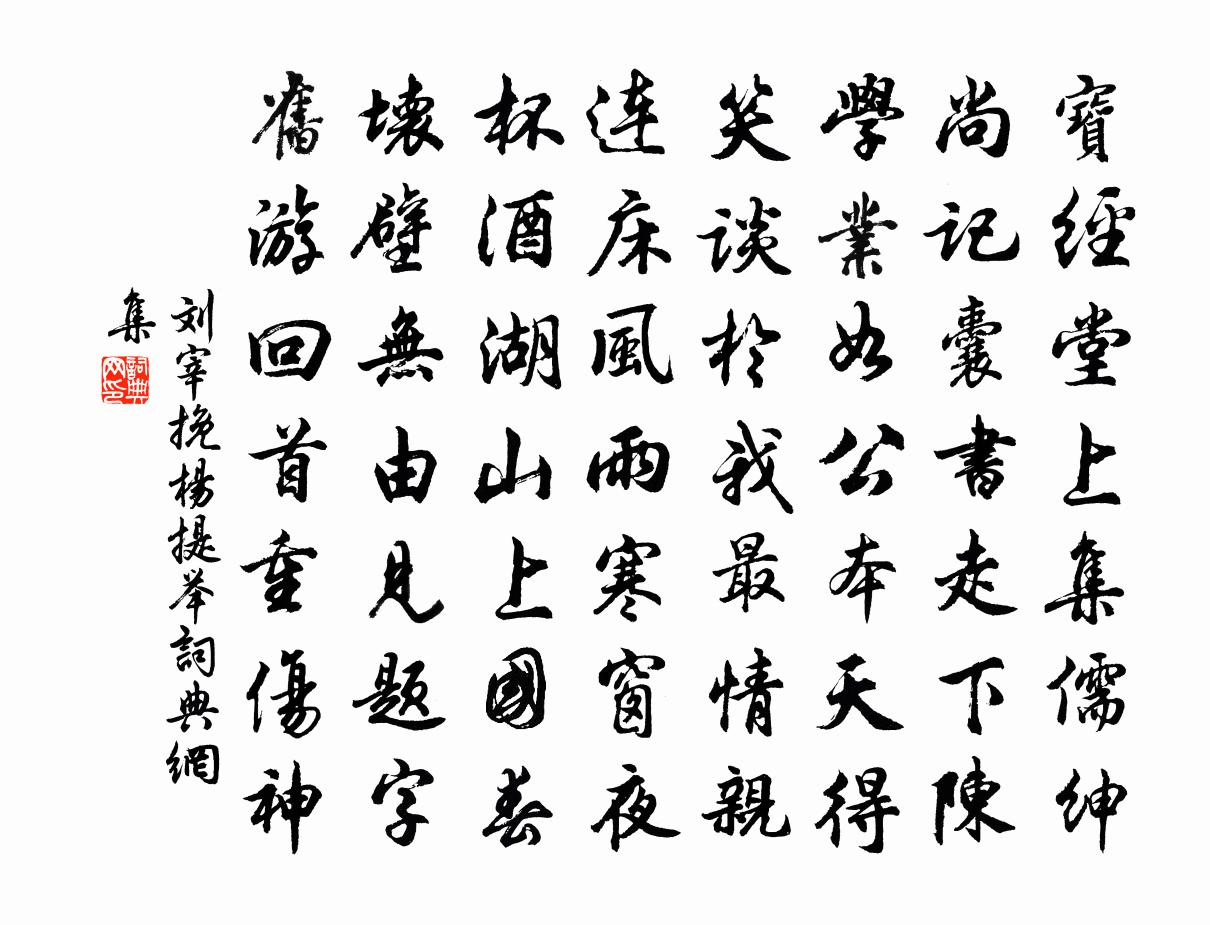 寶經堂上集儒紳
尚記囊書走下陳
學業如公本天得
笑談於我最情親
連床風雨寒窗夜
杯酒湖山上國春
壞壁無由見題字
舊游回首重傷神
刘宰挽楊提举詞典網
集
詞典网印